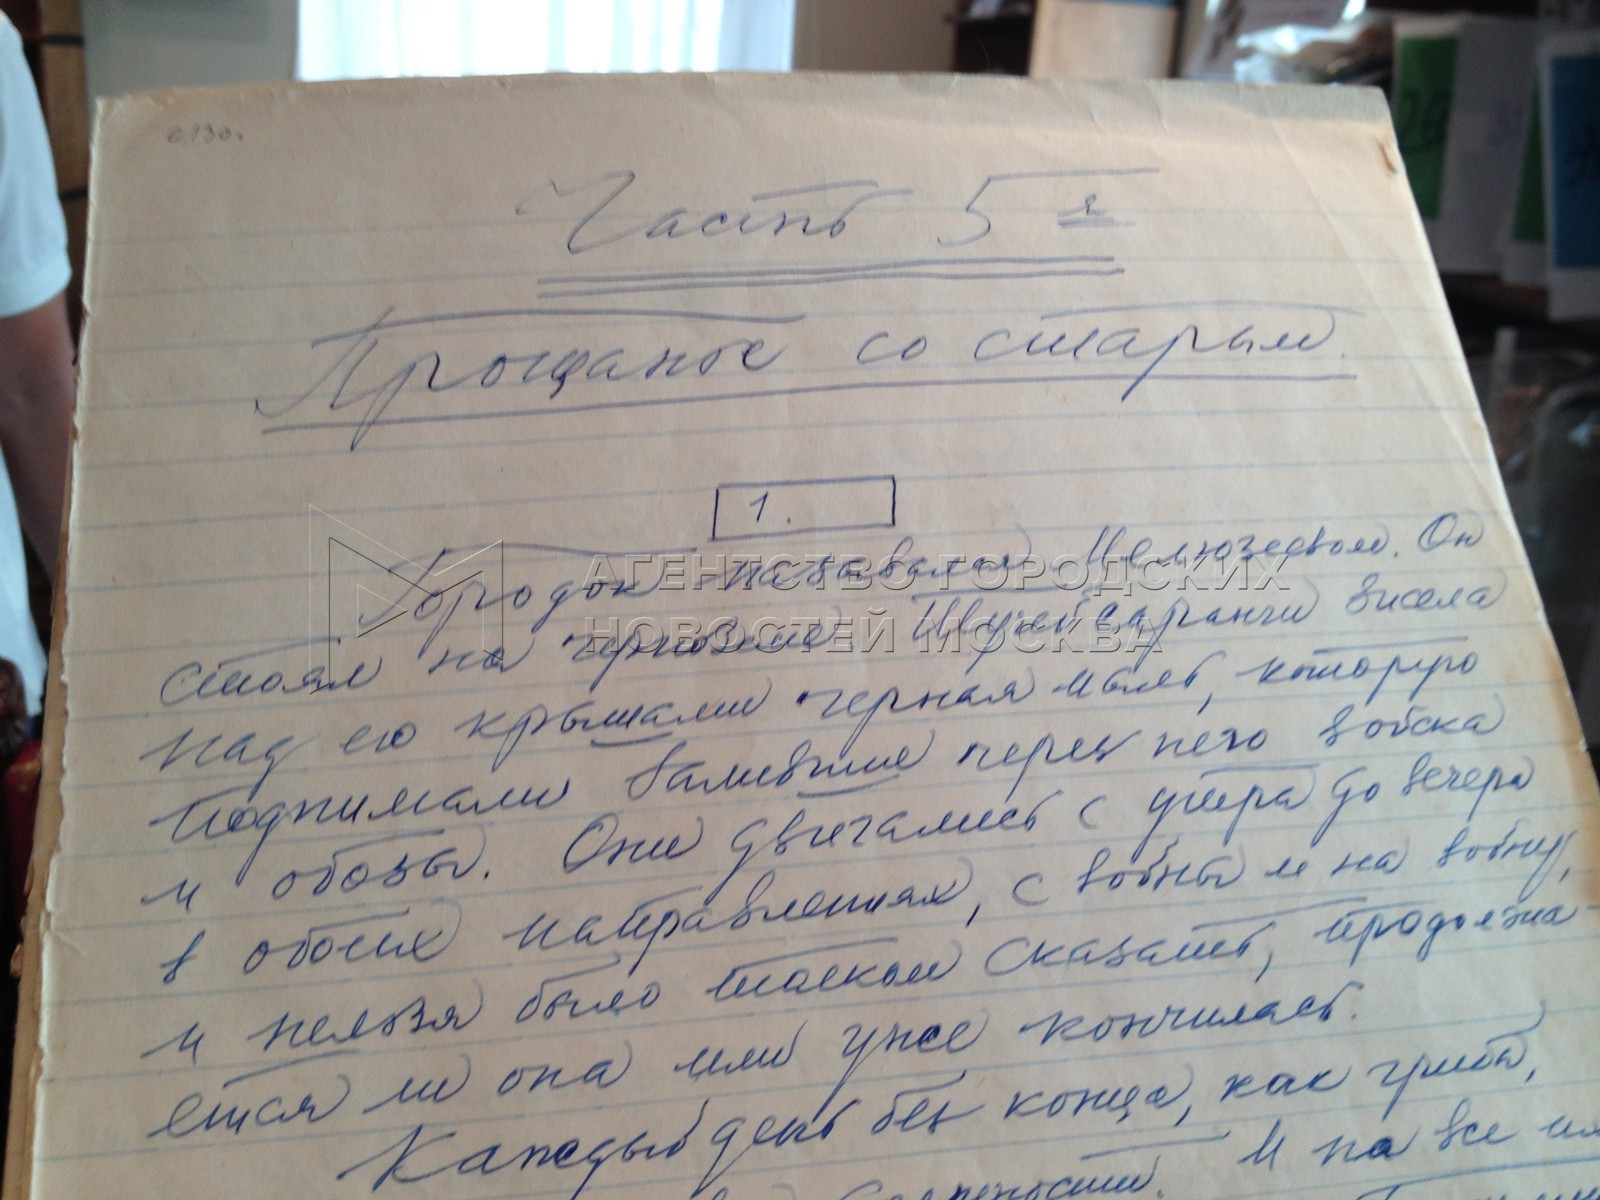 Часть 5 я
Прощанье со старым.
1.
Городок назывался Мелюзеевым. Он
стоял на черноземе. Тучей саранчи висела
над его крышами черная пыль, которую
поднимали валившие через него войска
и обозы. Они двигались с утра до вечера
в обоих направлениях, с войны и на войну,
и нельзя было толком сказать, продолжа-
ется ли она или уже кончилась.
Каждый день без конца, как грибы,
И на все их
АГЕНТСТВО ГОРОДСКИХ
НОВОСТЕЙ МОСКВА